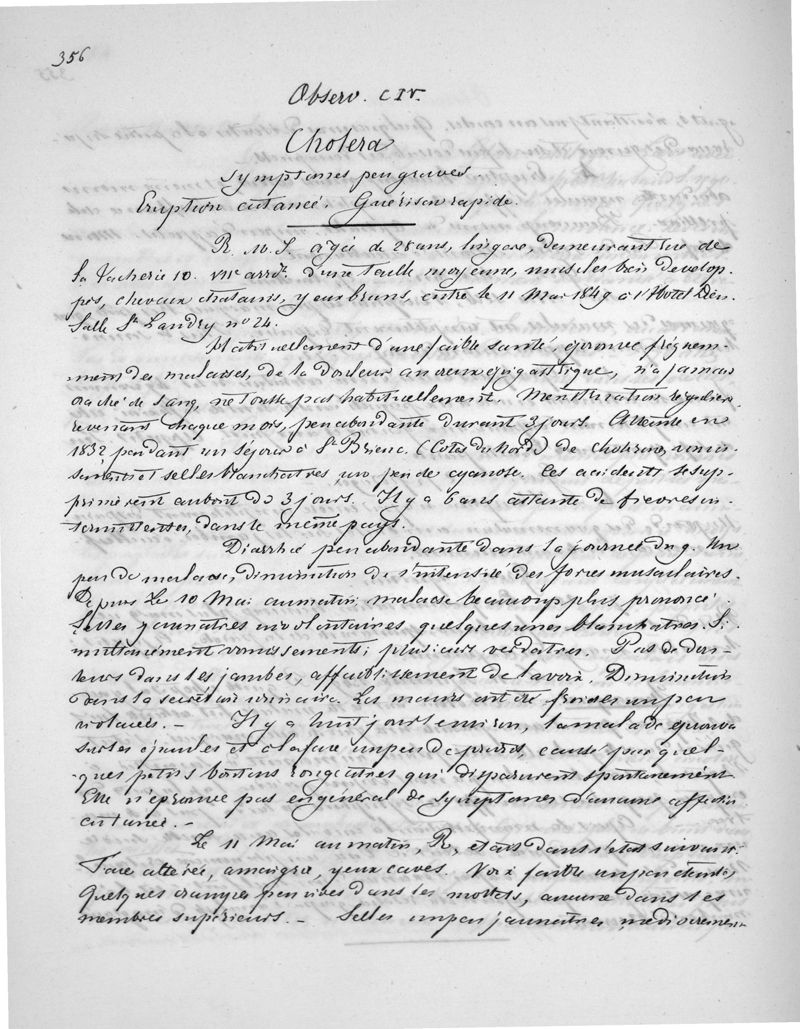 356
Observ. CIV.
Cholera
Symptomes peu graves.
Eruption cutaneé. Guérison rapide.
R. M. S. agée de 28 ans, lingere, demeurant rue de
la Vacherie 10. VIIe arrdt. d'une taille moyenne, muscles bien develop-
pés, cheveux chatains, yeux bruns, entre le 11 Mai 1849 à l'Hotel Dieu
Salle St Landry no 24.
Habituellement d'une faible santé, eprouve fréquem-
ment des malaises, de la douleur au creux epigastrique, n'a jamais
craché de sang, ne tousse pas habituellement. Menstruation reguliere
revenant chaque mois, peu abondante durant 3 jours. Atteinte en
1832 pendant un séjour à St Brieuc (Cotes du Nord) de cholerine, vomis-
sements et selles blanchatres, un peu de cyanose. Ces accidents se sup-
primèrent au bout de 3 jours. Il y a 6 ans atteinte de fievres in-
termittentes, dans le même pays.
Diarrhée peu abondante dans la journée du 9. Un
peu de malaise, diminution de l'intensité des forces musculaires.
Depuis le 10 Mai au matin, malaise beaucoup plus prononcé.
Selles jaunatres involontaires quelques unes blanchatres. Si-
multanément vomissements; plusieurs verdatres. Pas de dou-
leurs dans les jambes, affaiblissement de la voix. Diminution
dans la secretion urinaire. Les mains ont été froides un peu
violacées. — Il y a huit jours environ, la malade eprouva
sur les épaules et à la face un peu de prurit, causé par quel-
ques petits boutons rougeatres qui disparurent spontanément
Elle n'éprouve pas en général de symptomes d'aucune affection
cutaneé. —
Le 11 Mai au matin, R, etait dans l'etat suivant:
Face alterée, amaigrie, yeux caves. Voix faible un peu eteinte,
Quelques crampes penibles dans les mollets, aucune dans les
membres superieurs. — Selles un peu jaunatres mediocrement